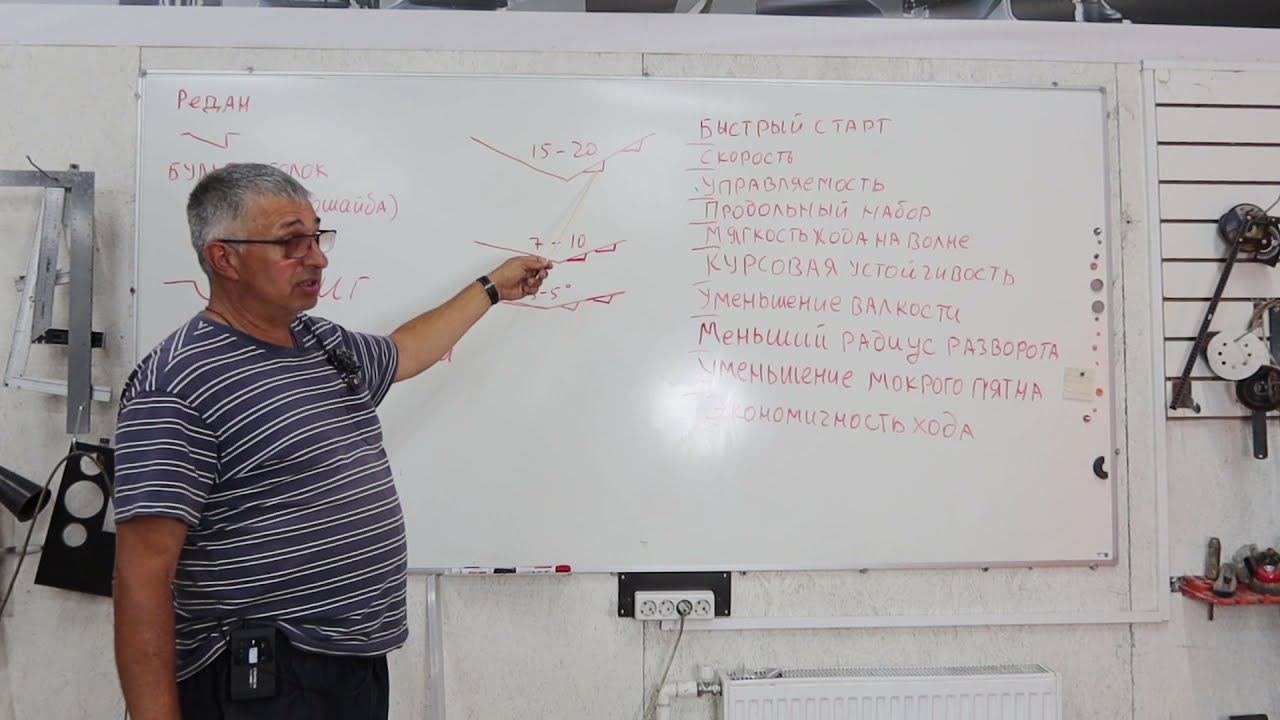 Редан
олок
ошайба)
15-20
7-10
-5°
Быстрый старт
Скорость
Управляемость
Продольный набор
Мягкость хода на волне
Курсовая устойчивость
Уменьшение валкости
Меньший радиус разворота
Уменьшение мокрого пятна
Экономичность хода